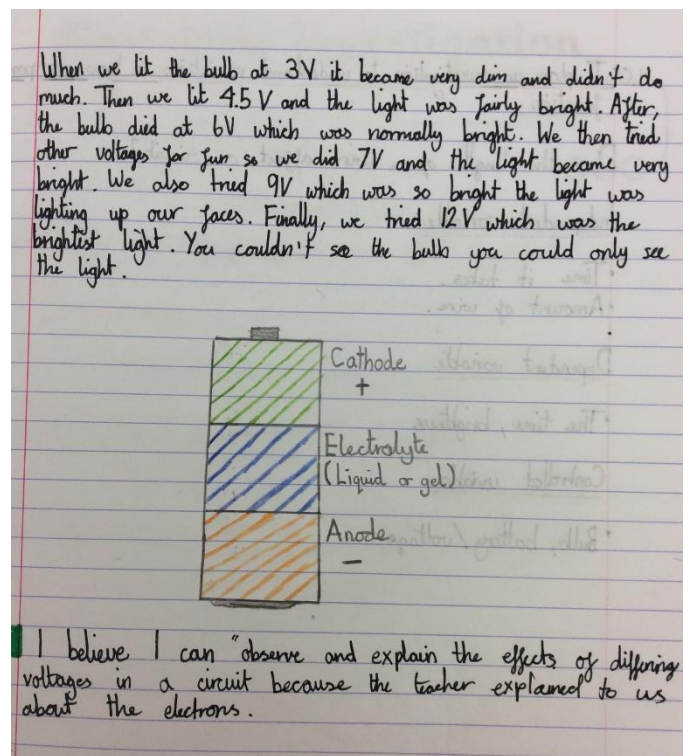 When we lit the bulb at 3V it became very dim and didn't do
much. Then we lit 4.5 V and the light was fairly bright. After,
the bulb died at 6V which was normally bright. We then tried
other voltages for fun so we did 7V and the light became very
bright. We also tried 9V which was so bright the light was
lighting up our faces. Finally, we tried 12V which was the
brightest light. You couldn't see the bulb you could only see
the light.
Cathode
+
Electrolyte
(Liquid or gel)
Anode
-
I believe I can "observe and explain the effects of differing
voltages in a circuit because the teacher explained to us
about the electrons.